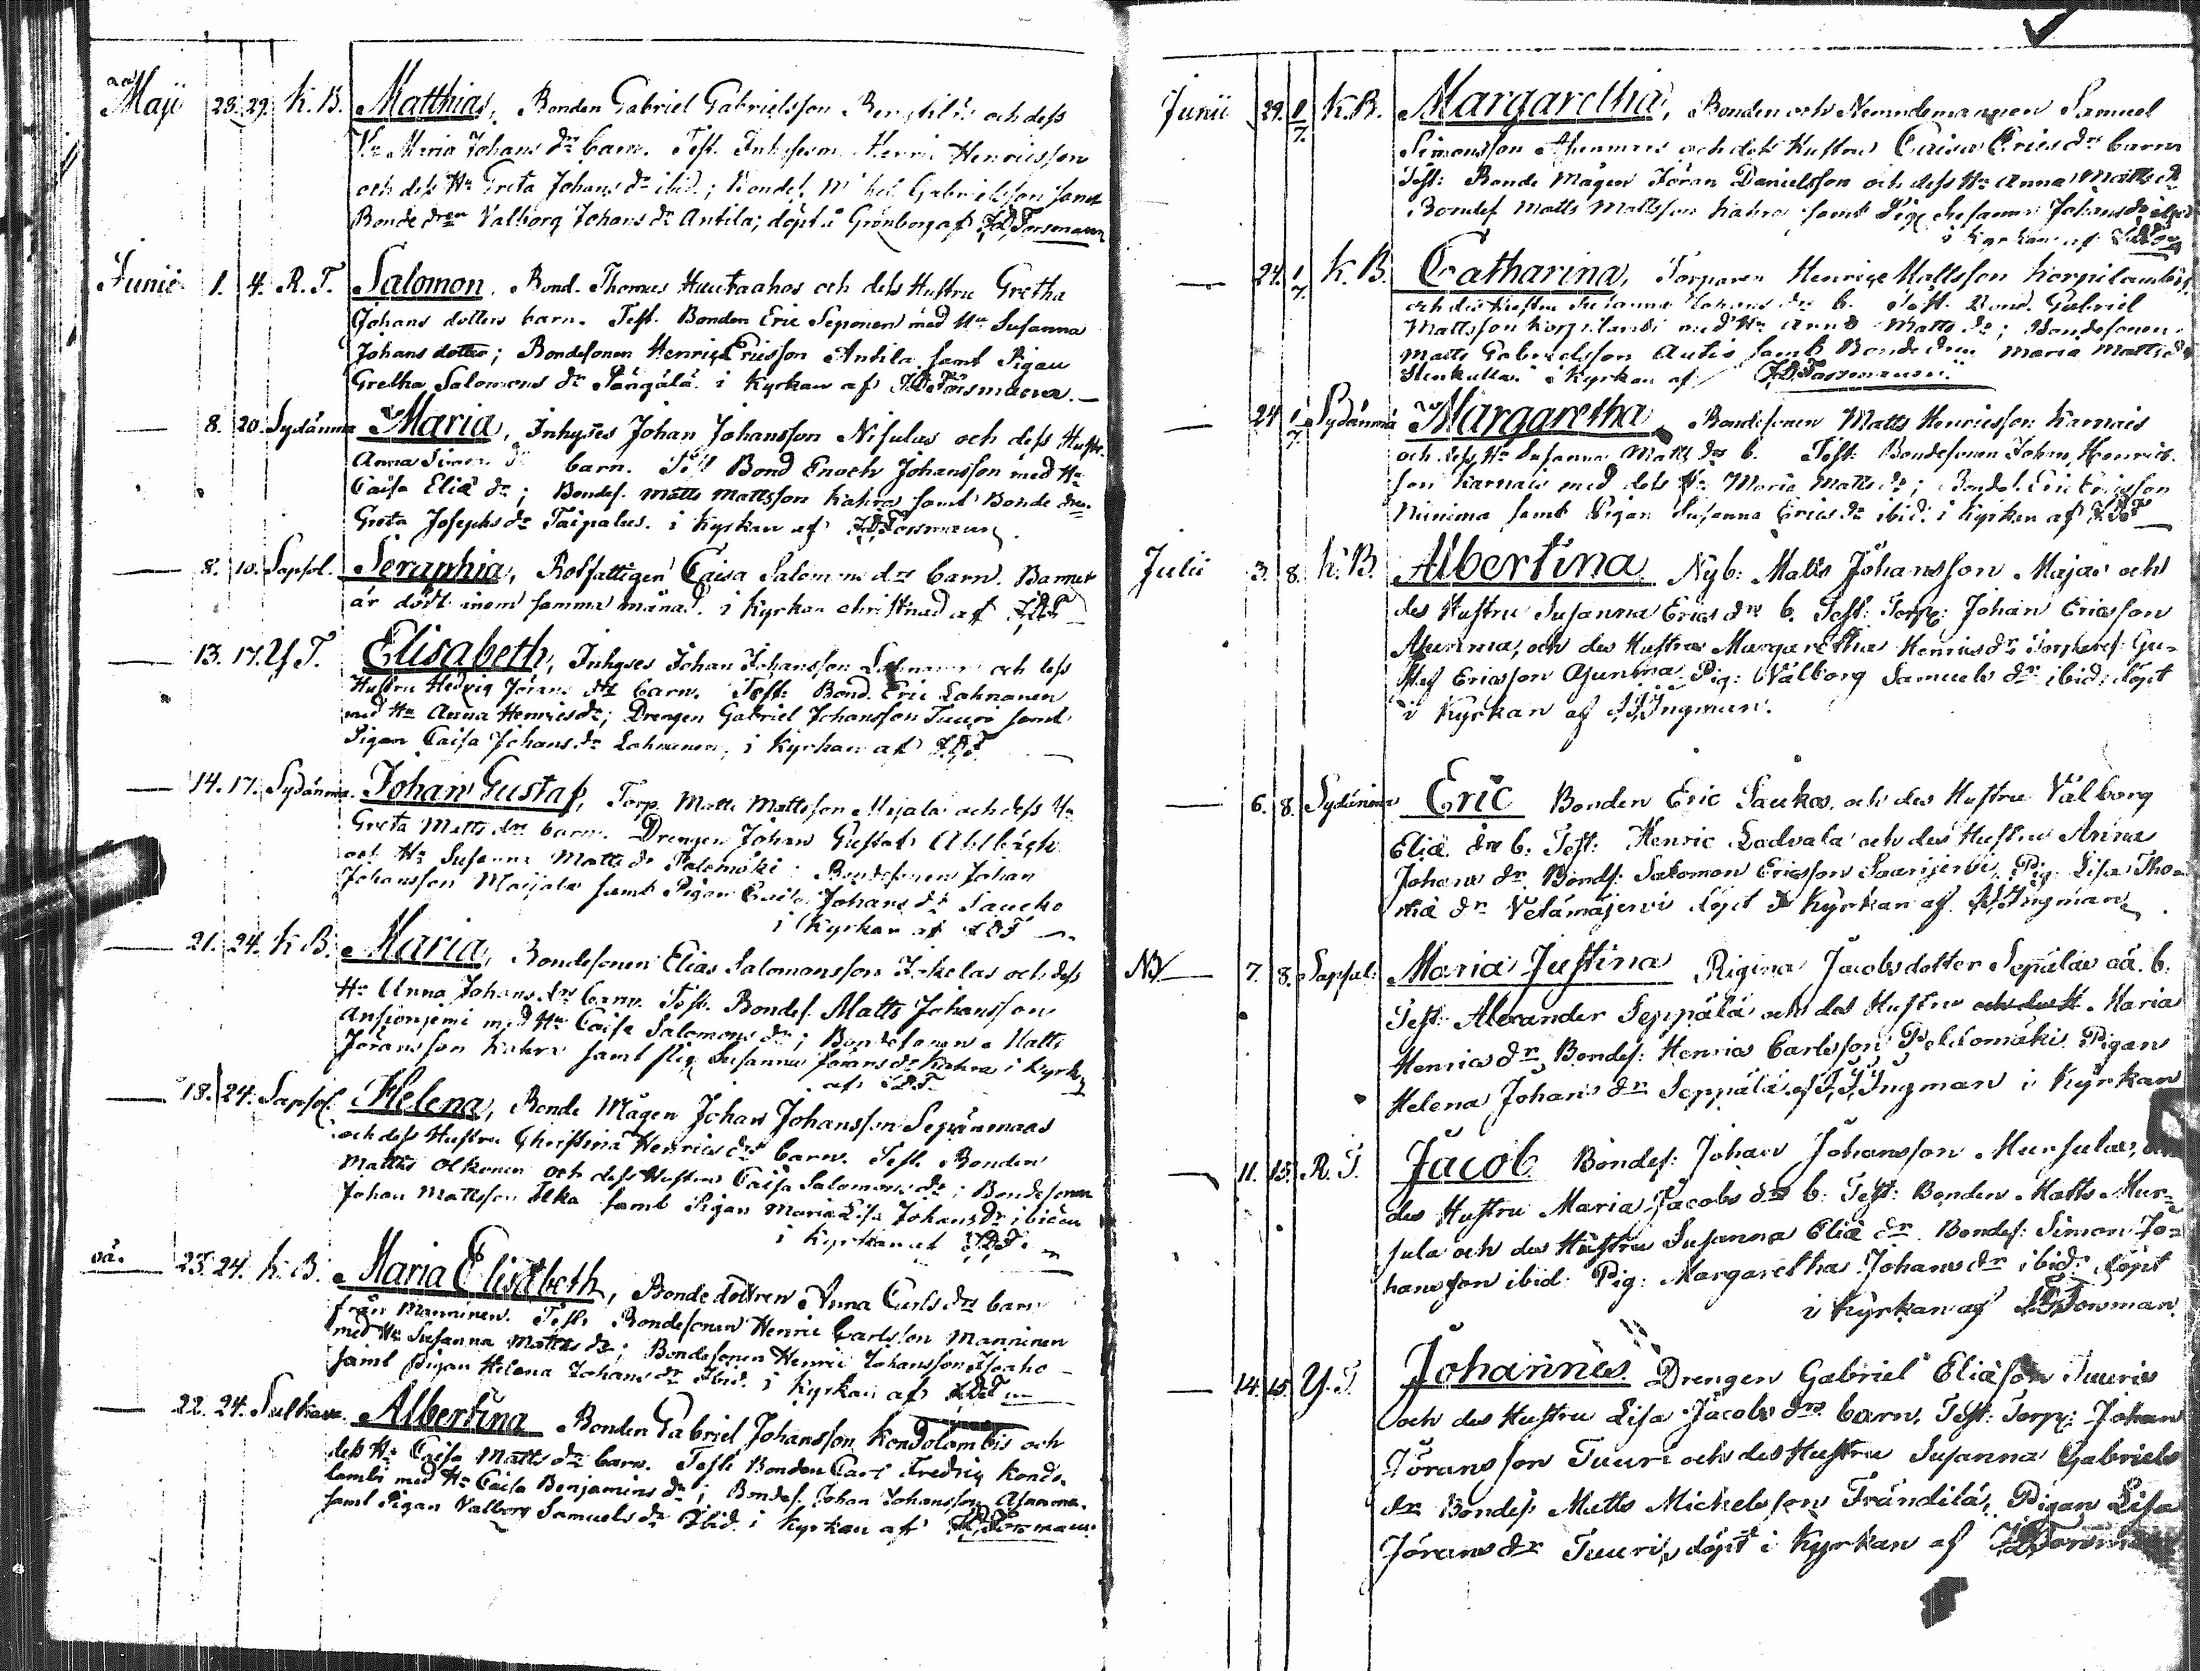 Maji 28. 29. K. B. Matthias, Bonden Gabriel Gabrielsson och dess
Hu Maria Johans dr barn. Test. Henric Henricsson
och dess Hu Greta Johans dr ibid.; Gabrielsson samt
Bonde dren Valborg Johans dr Antila; döpt i Grönborg af J.D. Forsmann
Junii 1. 4. R. T. Salomon, Bond. Thomas Huutaahos och dess Hustru Gretha
Johans dotters barn. Test. Bonden Eric Seponen med Hu Susanna
Johans dotter; Bondesonen Henric Ericsson Antila samt Pigan
Gretha Salomons dr Pängälä. i Kyrkan af J.D. Forsmann.
8. 20. Sydänma Maria, Inhyses Johan Johansson Nisulas och dess Hustr.
Anna Simons dr barn. Test Bond Enoch Johansson med Hu
Caisa Eliæ dr; Bondes. Matts Mattsson Kahra samt Bonde dren
Greta Josephs dr Taipalus. i Kyrkan af J.D. Forsmann.
8. 10. Sapsal. Seraphia, Rotfattigen Caisa Salomons drs barn. Barnet
är dödt inom samma månad. i Kyrkan christnad af J.D.F.
13. 17. Y. T. Elisabeth, Inhyses Johan Johansson och dess
Hustru Hedvig Jörans drs barn. Test: Bond. Eric Lahnanen
med Hu Anna Henrics dr; Drengen Gabriel Johansson Tuuri samt
Pigan Caisa Johans dr Lahnanen, i Kyrkan af J.D.F.
14. 17. Sydänma. Johan Gustaf, Torp. Matts Mattsson och dess Hu
Greta Matts drs barn. Drengen Johan Gustaf
och Hu Susanna Matts dr; Bondesonen Johan
Johansson Maijala samt Pigan Caisa Johans dr Saucko
i Kyrkan af J.D.F.
21. 24. K. B. Maria, Bondesonen Elias Salomonsson och dess
Hu Anna Johans drs barn. Test. Bondes. Matts Johansson
med Hu Caisa Salomons dr; Bondesonen Matts
Jöransson Kahra samt Pig. Susanna Jörans dr Kahra i Kyrkan
af J.D.F.
18. 24. Sapsal. Helena, Bonde Mågen Johan Johansson Sepänmaas
och dess Hustru Christina Henrics drs barn. Test. Bonden
Matths Olkonen och dess Hustru Caisa Salomons dr; Bondesonen
Johan Mattsson Ilka samt Pigan Maria Lisa Johans dr ibidem
i Kyrkan af J.D.F.
oä. 23. 24. K. B. Maria Elisabeth, Bonde dottren Anna Carls drs barn
från Manninen. Test. Bondesonen Henric Carlsson Manninen
med Hu Susanna Matts dr; Bondesonen Henric Johansson
samt Pigan Helena Johans dr Ibid. i Kyrkan af J.D.F.
22. 24. Sulkava. Albertina Bonden Gabriel Johansson Kondolambis och
dess Hu Caisa Matts drs barn. Test. Bonden Carl Fredrig Kondo-
lambi med Hu Caisa Benjamins dr; Bondes. Johan Johansson Asunma.
samt Pigan Valborg Samuels dr Ibid. i Kyrkan af J.D. Forsmann.
Junii 29. 1/7. K. B. Margaretha, Bonden och Nemndemannen Samuel
Simonsson och dess Hustru Caisa Erics drs barn
Test: Bonde Mågen Jöran Danielsson och dess Hu Anna Matts dr
Bondes Matts Mattsson Kahra samt Pig. Susanna Johans dr
i Kyrkan af
24. 1/7. K. B. Catharina, Torparen Henric Mattsson Korpilambis
och dess Hustru Susanna Johans drs b. Test. Bond. Gabriel
Mattsson Korpilambi med Hu Anna Matts dr; Bondesonen
Matts Gabrielsson Autio samt Bonde dren Maria Matts dr
i Kyrkan af J.D. Forsmann.
24 1/7. Sydänma Margaretha, Bondesonen Matts Henricsson Karnais
och dess Hu Susanna Matts drs b. Test: Bondesonen Johan Henrics-
son Karnais med dess Hu Maria Matts dr; Bondes. Eric Ericsson
Niinima samt Pigan Susanna Erics dr ibid. i Kyrkan af J.D.F.
Julii 3. 8. K. B. Albertina Nyb: Matts Johansson Majas och
des Hustru Susanna Erics drs b. Test: Torp: Johan Ericsson
Asunma, och des Hustru Margaretha Henrics dr Torpares: Gu-
staf Ericsson Asunma. Pig: Valborg Samuels dr ibid: döpt
i Kyrkan af J.J. Ingman.
6. 8. Sydänma Eric Bonden Eric Saukos, och des Hustru Valborg
Eliæ drs b: Test: Henric Ladvala och des Hustru Anna
Johans dr. Bonds: Salomon Ericsson Saarijervi. Pig. Lisa Tho-
mæ dr Vetämäjervi döpt i Kyrkan af. J.J. Ingman.
NB 7. 8. Sapsal: Maria Justina Rigina Jacobsdotter Sepälas oä. b.
Test: Alexander Seppälä och des Hustru och des H Maria
Henrics dr, Bondes: Henric Carlsson Peldomäki. Pigan
Helena Johans dr Seppälä. af J.J. Ingman i Kyrkan
11. 15. R. T. Jacob Bondes: Johan Johansson Mursulas,
des Hustru Maria Jacobs drs b: Test: Bonden Matts Mur-
sula och des Hustru Susanna Eliæ dr. Bondes: Simon Jo-
hansson ibid: Pig: Margaretha Johans dr ibid: döpt
i Kyrkan af J.D. Forsman.
14. 15. Y. T. Johannes. Drengen Gabriel Eliæson Tuuris
och des Hustru Lisa Jacobs drs barn, Test: Torp: Johan
Jöransson Tuuri och des Hustru Susanna Gabriels
dr Bondes: Matts Mickelsson Frändilä, Pigan Lisa
Jörans dr Tuuri, döpt i Kyrkan af J.D. Forsman